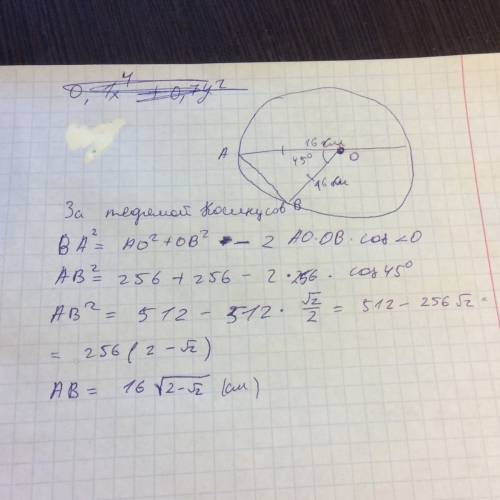 0,1x⁴ + 0,7y²
16 см
A
45°
O
16 см
B
За теоремой Косинусов
BA² = AO² + OB² - 2 AO·OB·cos<O
AB² = 256 + 256 - 2·256·cos45°
AB² = 512 - 512·√2/2 = 512 - 256√2 =
= 256(2-√2)
AB = 16√2-√2 (см)